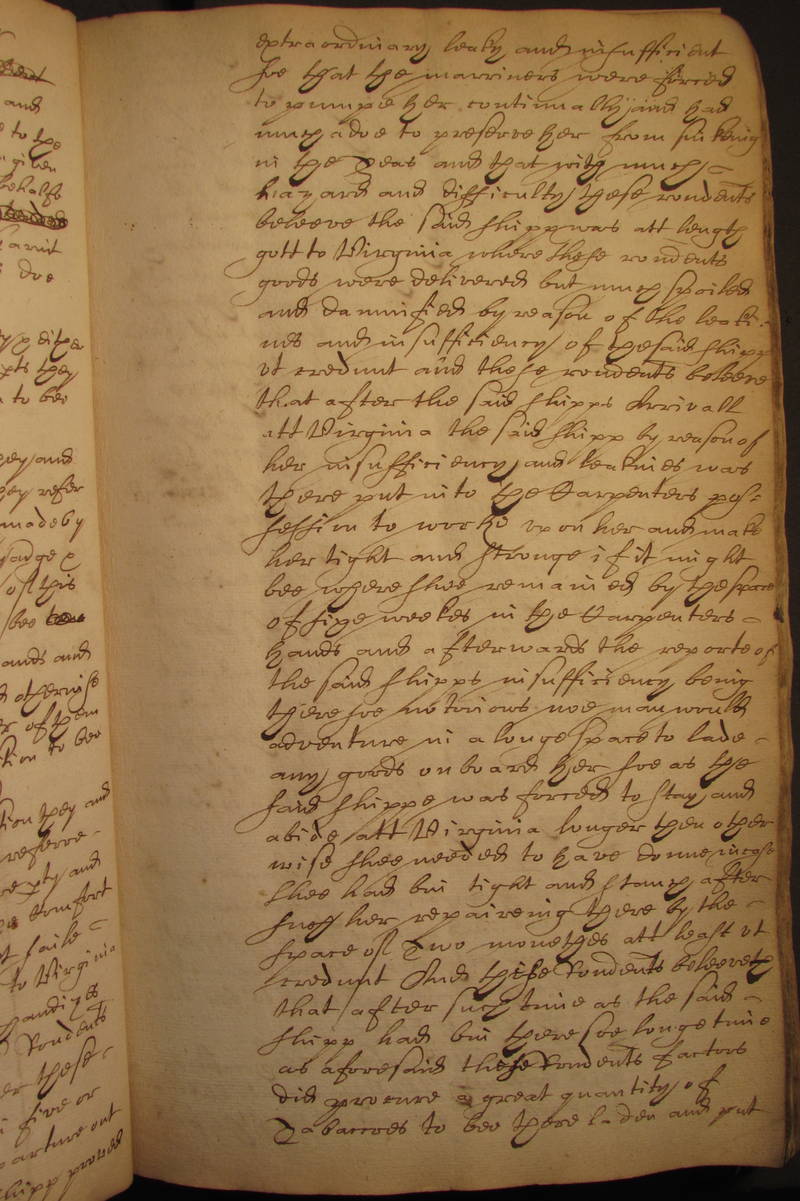 and
to the
given
behalfe
doe
they
to bee
they and
they refer
made by
of this
bee
ands and
otherwise
of them
tion to bee
tion they and
referre-
and
Comfort
faile-
to Virginia
Rondents
these-
five or
parture out
shipp proved
extraordinary leaky and insufficient
soe that the marriners were forced
to pumpe her continually and had
much adoe to preserve her from sinking
in the Seas and that with much-
hazard and difficulty these rondents
beleeve the said shipp was att length
gott to Virginia where these rondents
goods were delivered but much spoiled
and damnified by reason of the leaki-
nes and insufficiency of the said shipp
vt credunt and these rondents beleeve
that after the said shipps Arrivall
att Virginia the said shipp by reason of
her insufficiency and leakines was
there put into the Carpenters pos=
session to worke vpon her and make
her tight and stronge if it might
bee where shee remained by the space
of sixe weekes in the Carpenters-
hands and afterwards the reporte of
the said shipps insufficiency being
there soe notorious noe man would
adventure in a longe space to lade-
any goods on board her soe as the
said shippe was forced to stay and
abide att Virginia longer then other
wise shee needed to have donne incase
shee had bin tight and stanch after
such her repaireing there by the-
space of Two monethes att least vt
credunt And these Rondents beleeveth
that after such time as the said-
shipp had bin there soe longe time
as aforesaid these Rondents factors
did procure a great quantity of
Tabaccoes to bee there laden and put